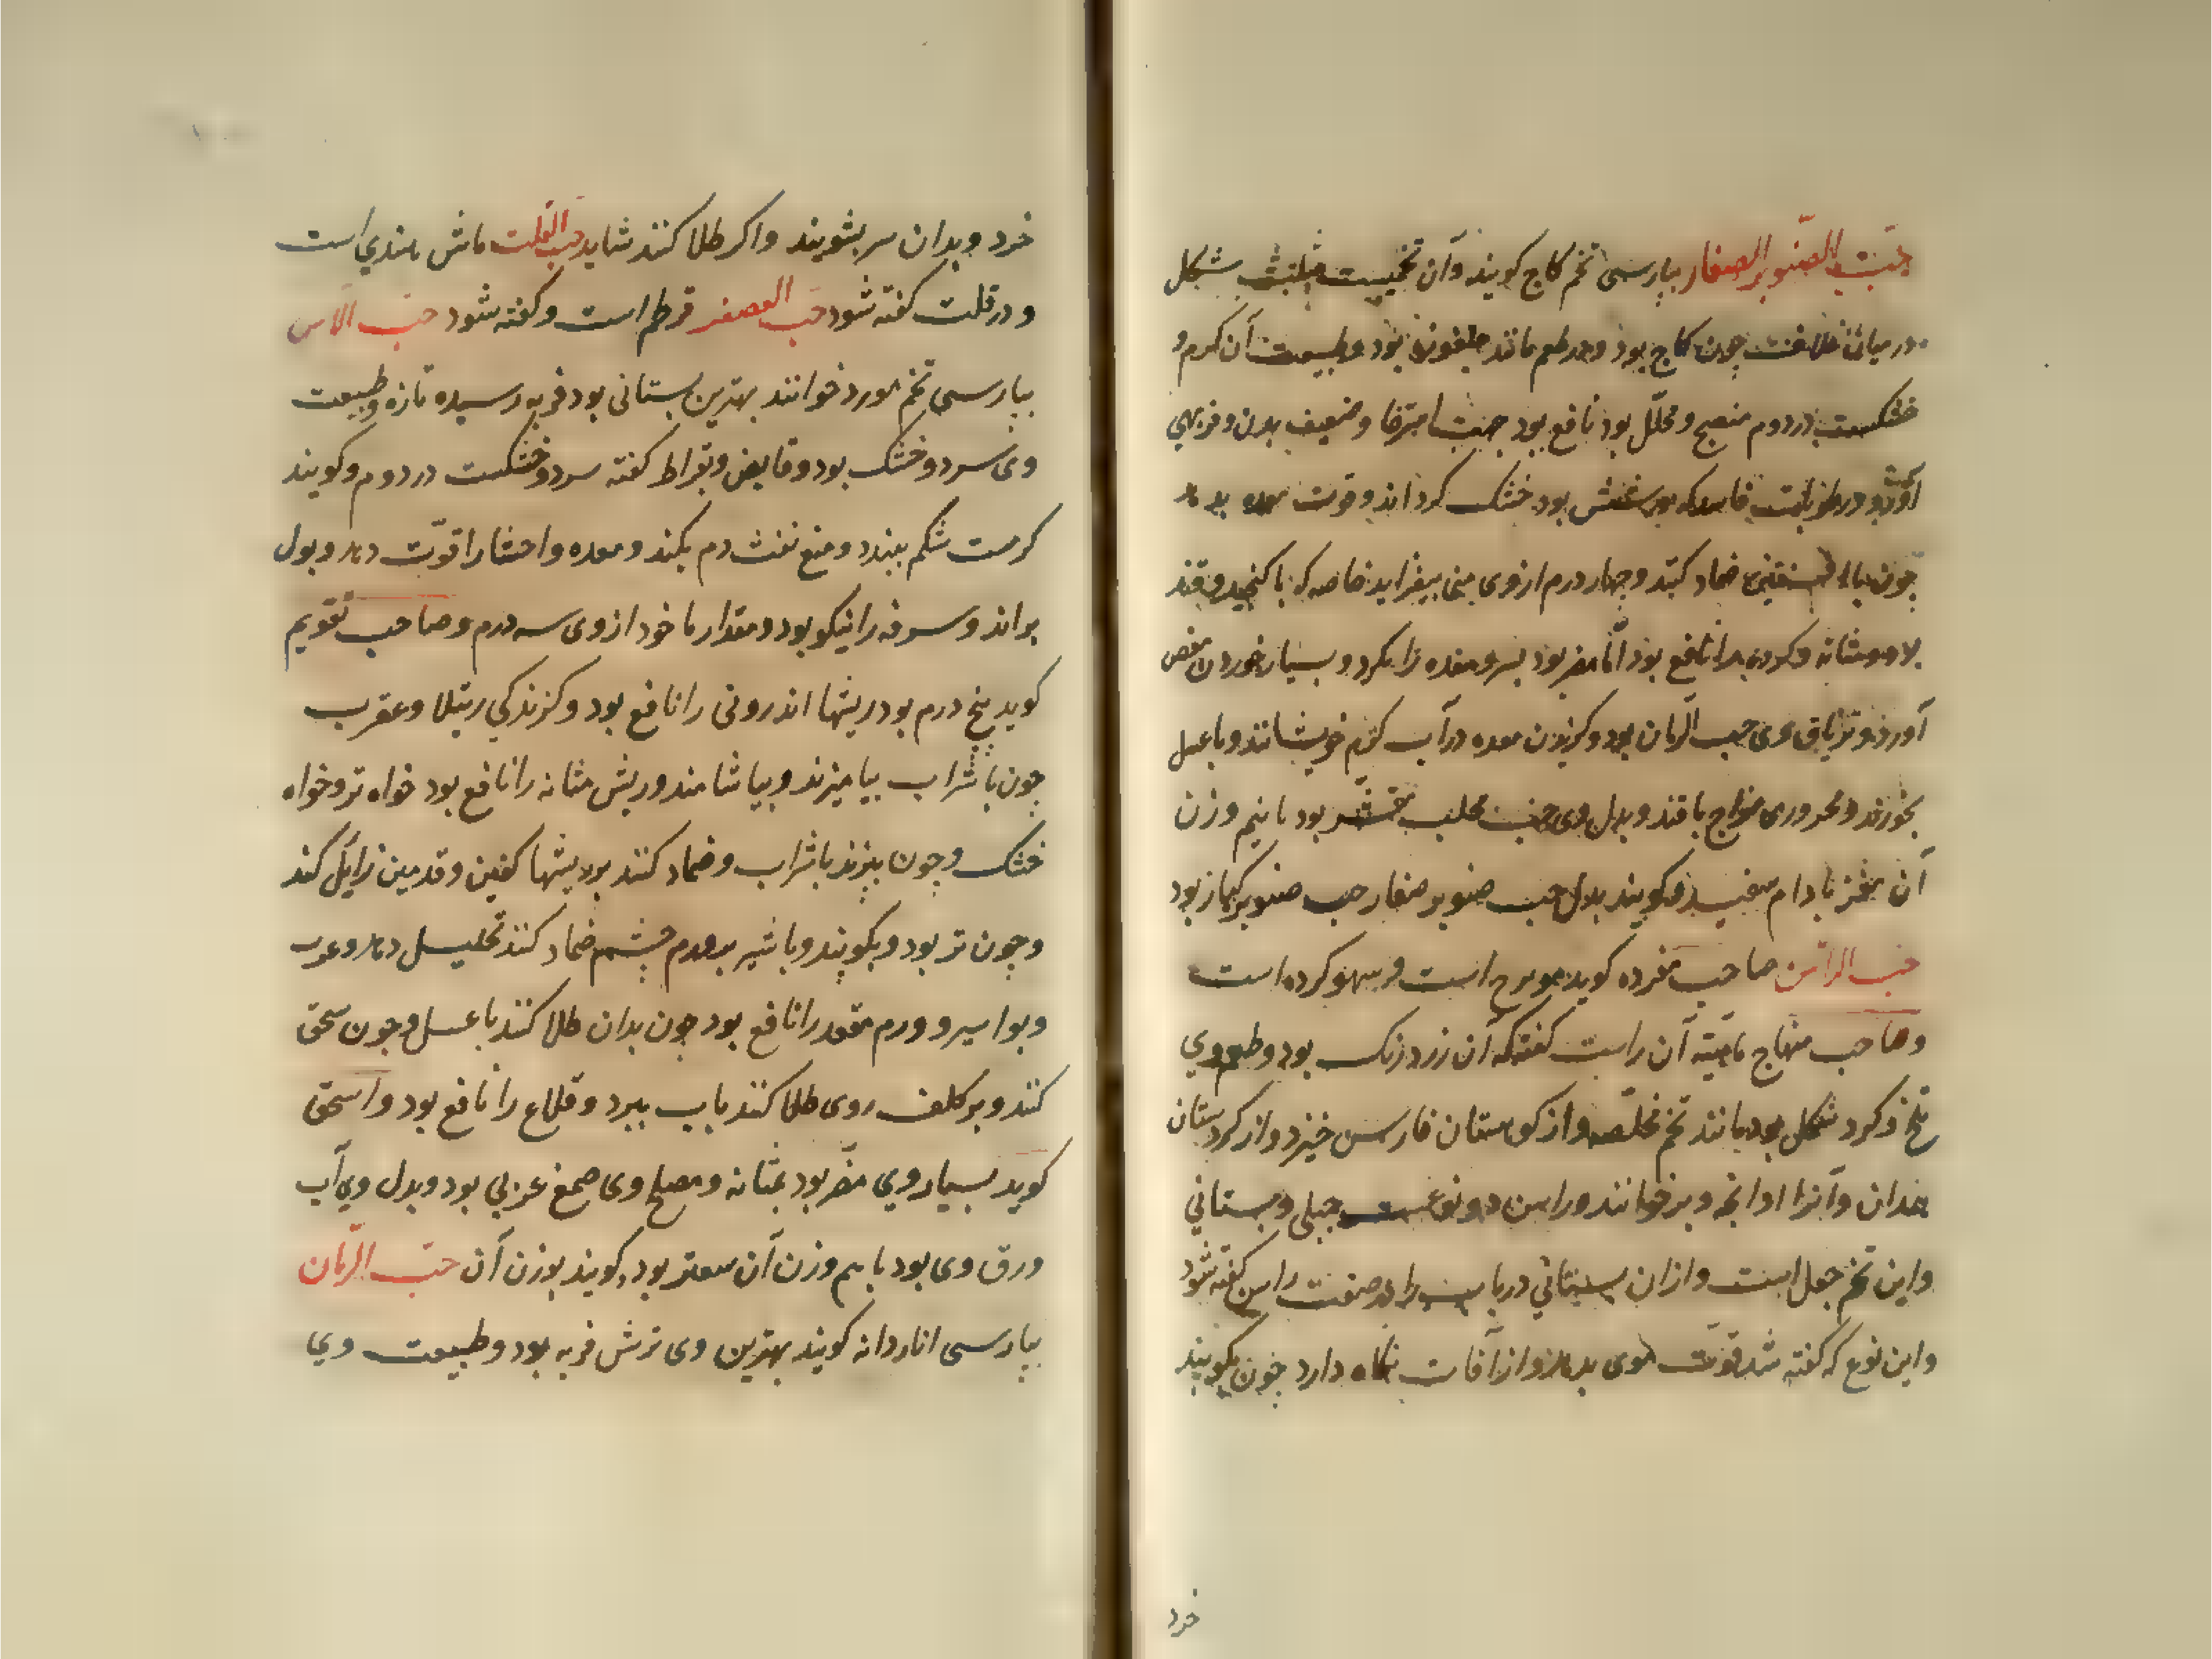 حبّ الصّنوبر الصغار بپارسی تخم کاج کویند وآن تخمیست مثلث شکل
در میانش غلافست چون کاج بود ودر طعم مانند جلغوزه بود وطبیعت آن کرم و
خشکست در دوم منضج ومحلّل بود نافع بود جهت استرخا وضعیف بدن وفربهی
آورد ورطوبات فاسد که در شش بود خشک کرداند وقوت معده بدهد
چون با افسنتین ضماد کنند وچهار درم از وی منی بیفزاید خاصه که با کنجد وقند
بود ومثانه وکرده را نافع بود امّا مضر بود بسر ومعده را بکزد وبسیار خوردن مغص
آورد وتریاق وی حب الرمان بود وکزیدن معده در آب کرم خویشانند وبا عسل
بخورند ومحروری مزاج با قند وبدل وی حب محلب مقشر بود با نیم وزن
آن مغز بادام سفید وکویند بدل حب صنوبر صغار حب صنوبر کبار بود
حب الراسن صاحب مفرده کوید مویزج است وسهو کرده است
وصاحب منهاج ماهیّة آن راست کفته که آن زرد رنک بود وطعم وی
تلخ وکرد شکل بود مانند تخم مخلّصه واز کوهستان فارس خیزد واز کردستان
همدان وآنرا اوانجه وبر خوانند وراسن دو نوعست جبلی وبستانی
واین تخم جبل است وازان بستانی در باب را در صفت راسن کفته شود
واین نوع که کفته شد قوّت موی بدهد واز آفات نکاه دارد چون بکوبند
خرد
خرد وبدان سر بشویند واکر طلا کنند شاید حب القلت ماش هندی است
ودر قلت کفته شود حب العصفر قرطم است وکفته شود حبّ الآس
بپارسی تخم مورد خوانند بهترین بستانی بود فربه رسیده تازه وطبیعت
وی سرد وخشک بود وقابض وبقراط کفته سرد وخشکست در دوم وکویند
کرمست شکم ببندد ومنع نفث دم بکند ومعده واحشا را قوّت دهد وبول
براند وسرفه را نیکو بود ومقدار ماخود از وی سه درم وصاحب تقویم
کوید پنج درم بود ریشها اندرونی را نافع بود وکزندکی رتیلا وعقرب
چون با شراب بیامیزند وبیاشامند وریش مثانه را نافع بود خواه تر وخواه
خشک وچون بپزند با شراب وضماد کنند بر ریشها کفین وقدمین زایل کند
وچون تر بود وبکوبند وبا شیر بر ورم چشم ضماد کنند تحلیل دهد وعرب
وبواسیر وورم مقعد را نافع بود چون بدان طلا کنند با عسل وچون سحق
کنند وبر کلف روی طلا کنند باب ببرد وقلاع را نافع بود واسحق
کوید بسیار وی مضّر بود بمثانه ومصلح وی صمغ عربی بود وبدل وی آب
ورق وی بود با هم وزن آن سعتر بود وکویند بوزن آن حبّ الرّمان
بپارسی اناردانه کویند بهترین وی ترش فربه بود وطبیعت وی